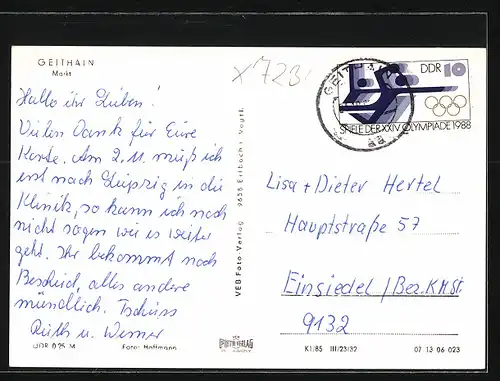 GEITHAIN
Markt
x 723
DDR 10
SPIELE DER XXIV. OLYMPIADE 1988
Hallo ihr Lieben!
Vielen Dank für Eure
Karte. Am 2.11. muß ich
erst nach Leipzig in die
Klinik, so kann ich noch
nicht sagen wie es weiter
geht. Ihr bekommt noch
Bescheid, alles andere
mündlich. Tschüss
Ruth u. Werner
VEB Foto-Verlag 9635 Erlbach i. Vogtl.
Lisa + Dieter Hertel
Hauptstraße 57
Einsiedel / Bez. K.M.St.
9132
DDR 0,25 M
Foto: Hoffmann
K1/85 III/23/32
07 13 06 023